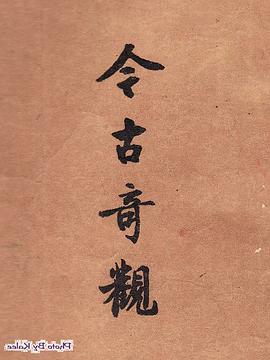 今古奇觀
Photo By Kalee